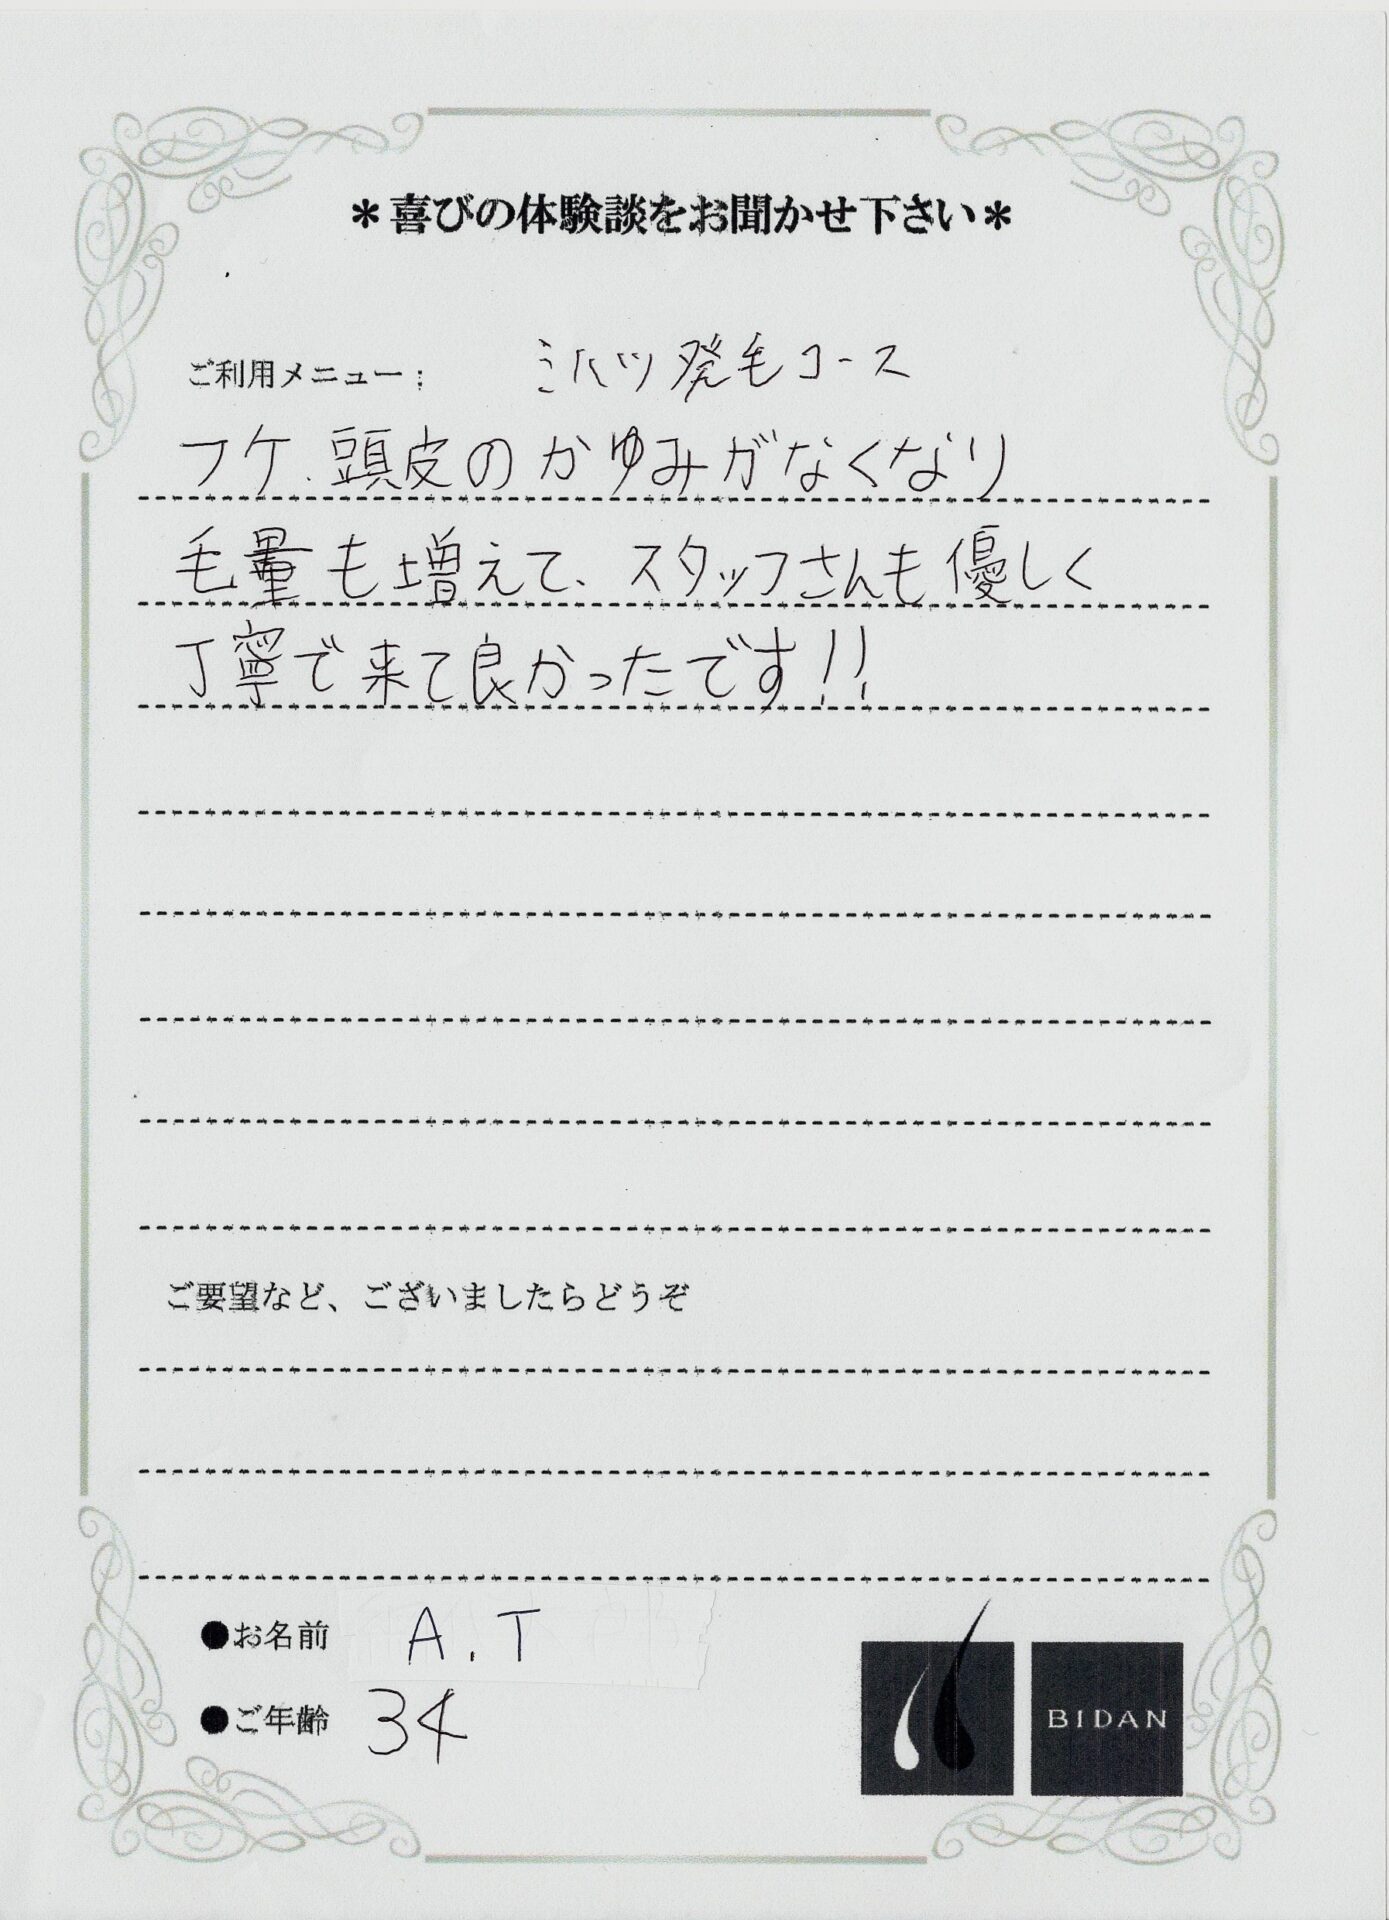 ＊喜びの体験談をお聞かせ下さい＊
ご利用メニュー： ミハツ発毛コース
フケ、頭皮のかゆみがなくなり
毛量も増えて、スタッフさんも優しく
丁寧で来て良かったです!!
ご要望など、ございましたらどうぞ
●お名前 A.T
●ご年齢 34
BIDAN